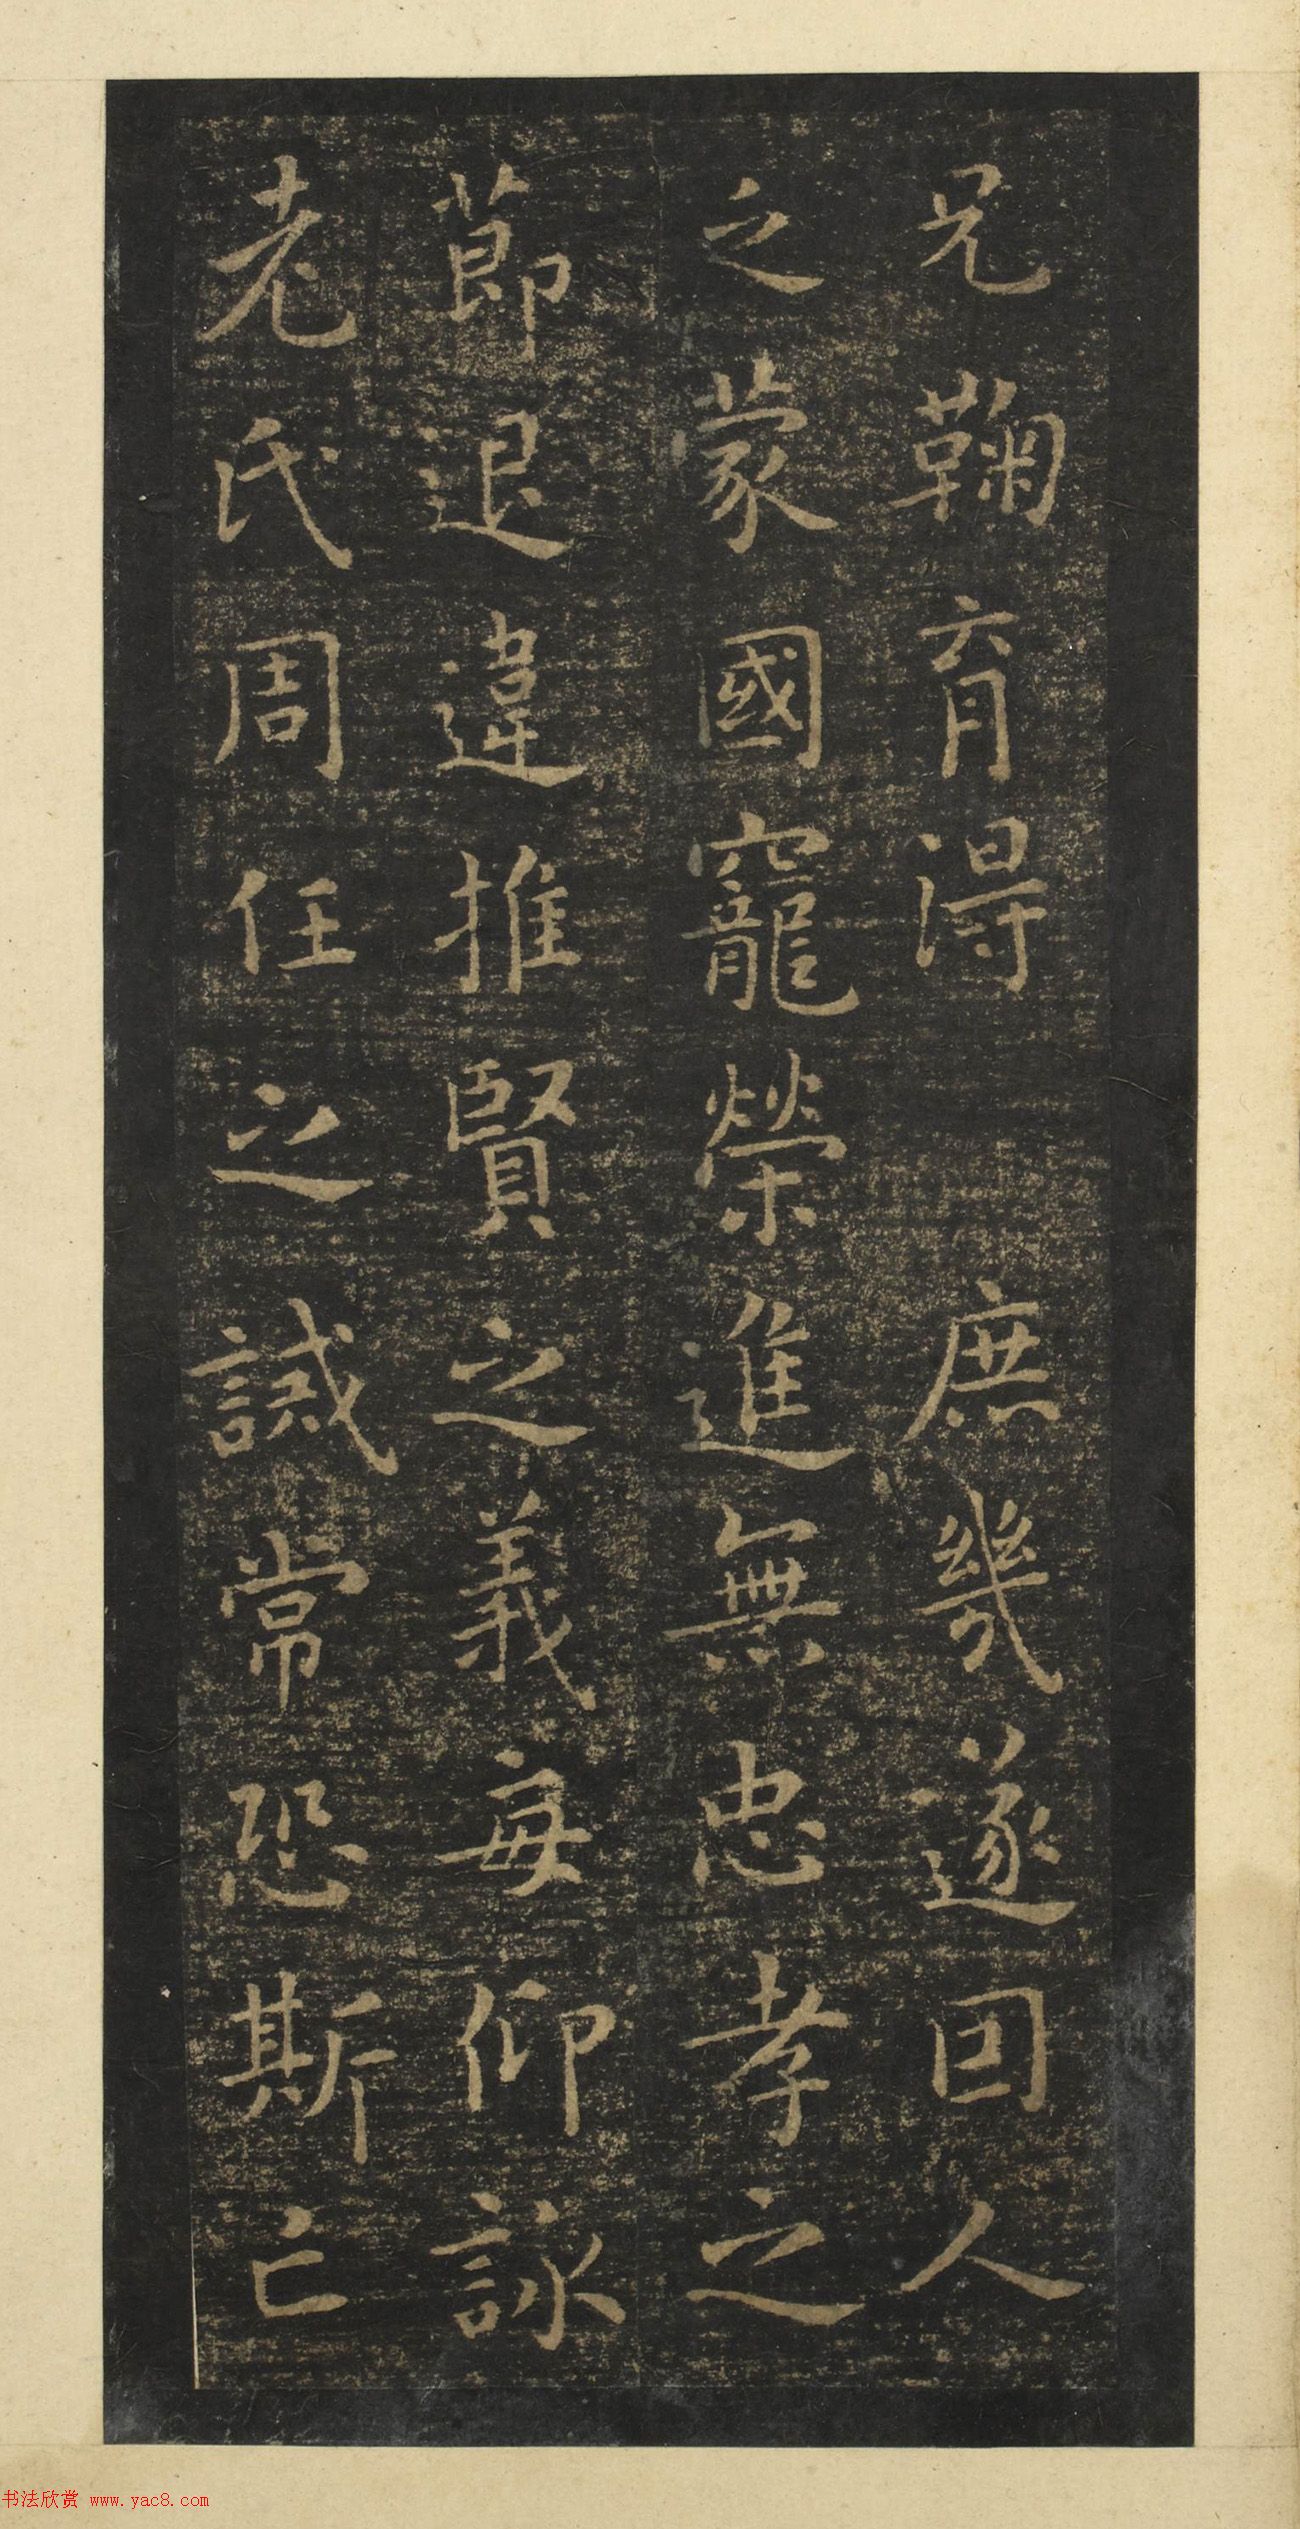 兄鞠育得庶幾遂因人
之蒙國寵榮進無忠孝之
節退違推賢之義每仰詠
老氏周任之誡常恐斯亡
书法欣赏 www.yac8.com